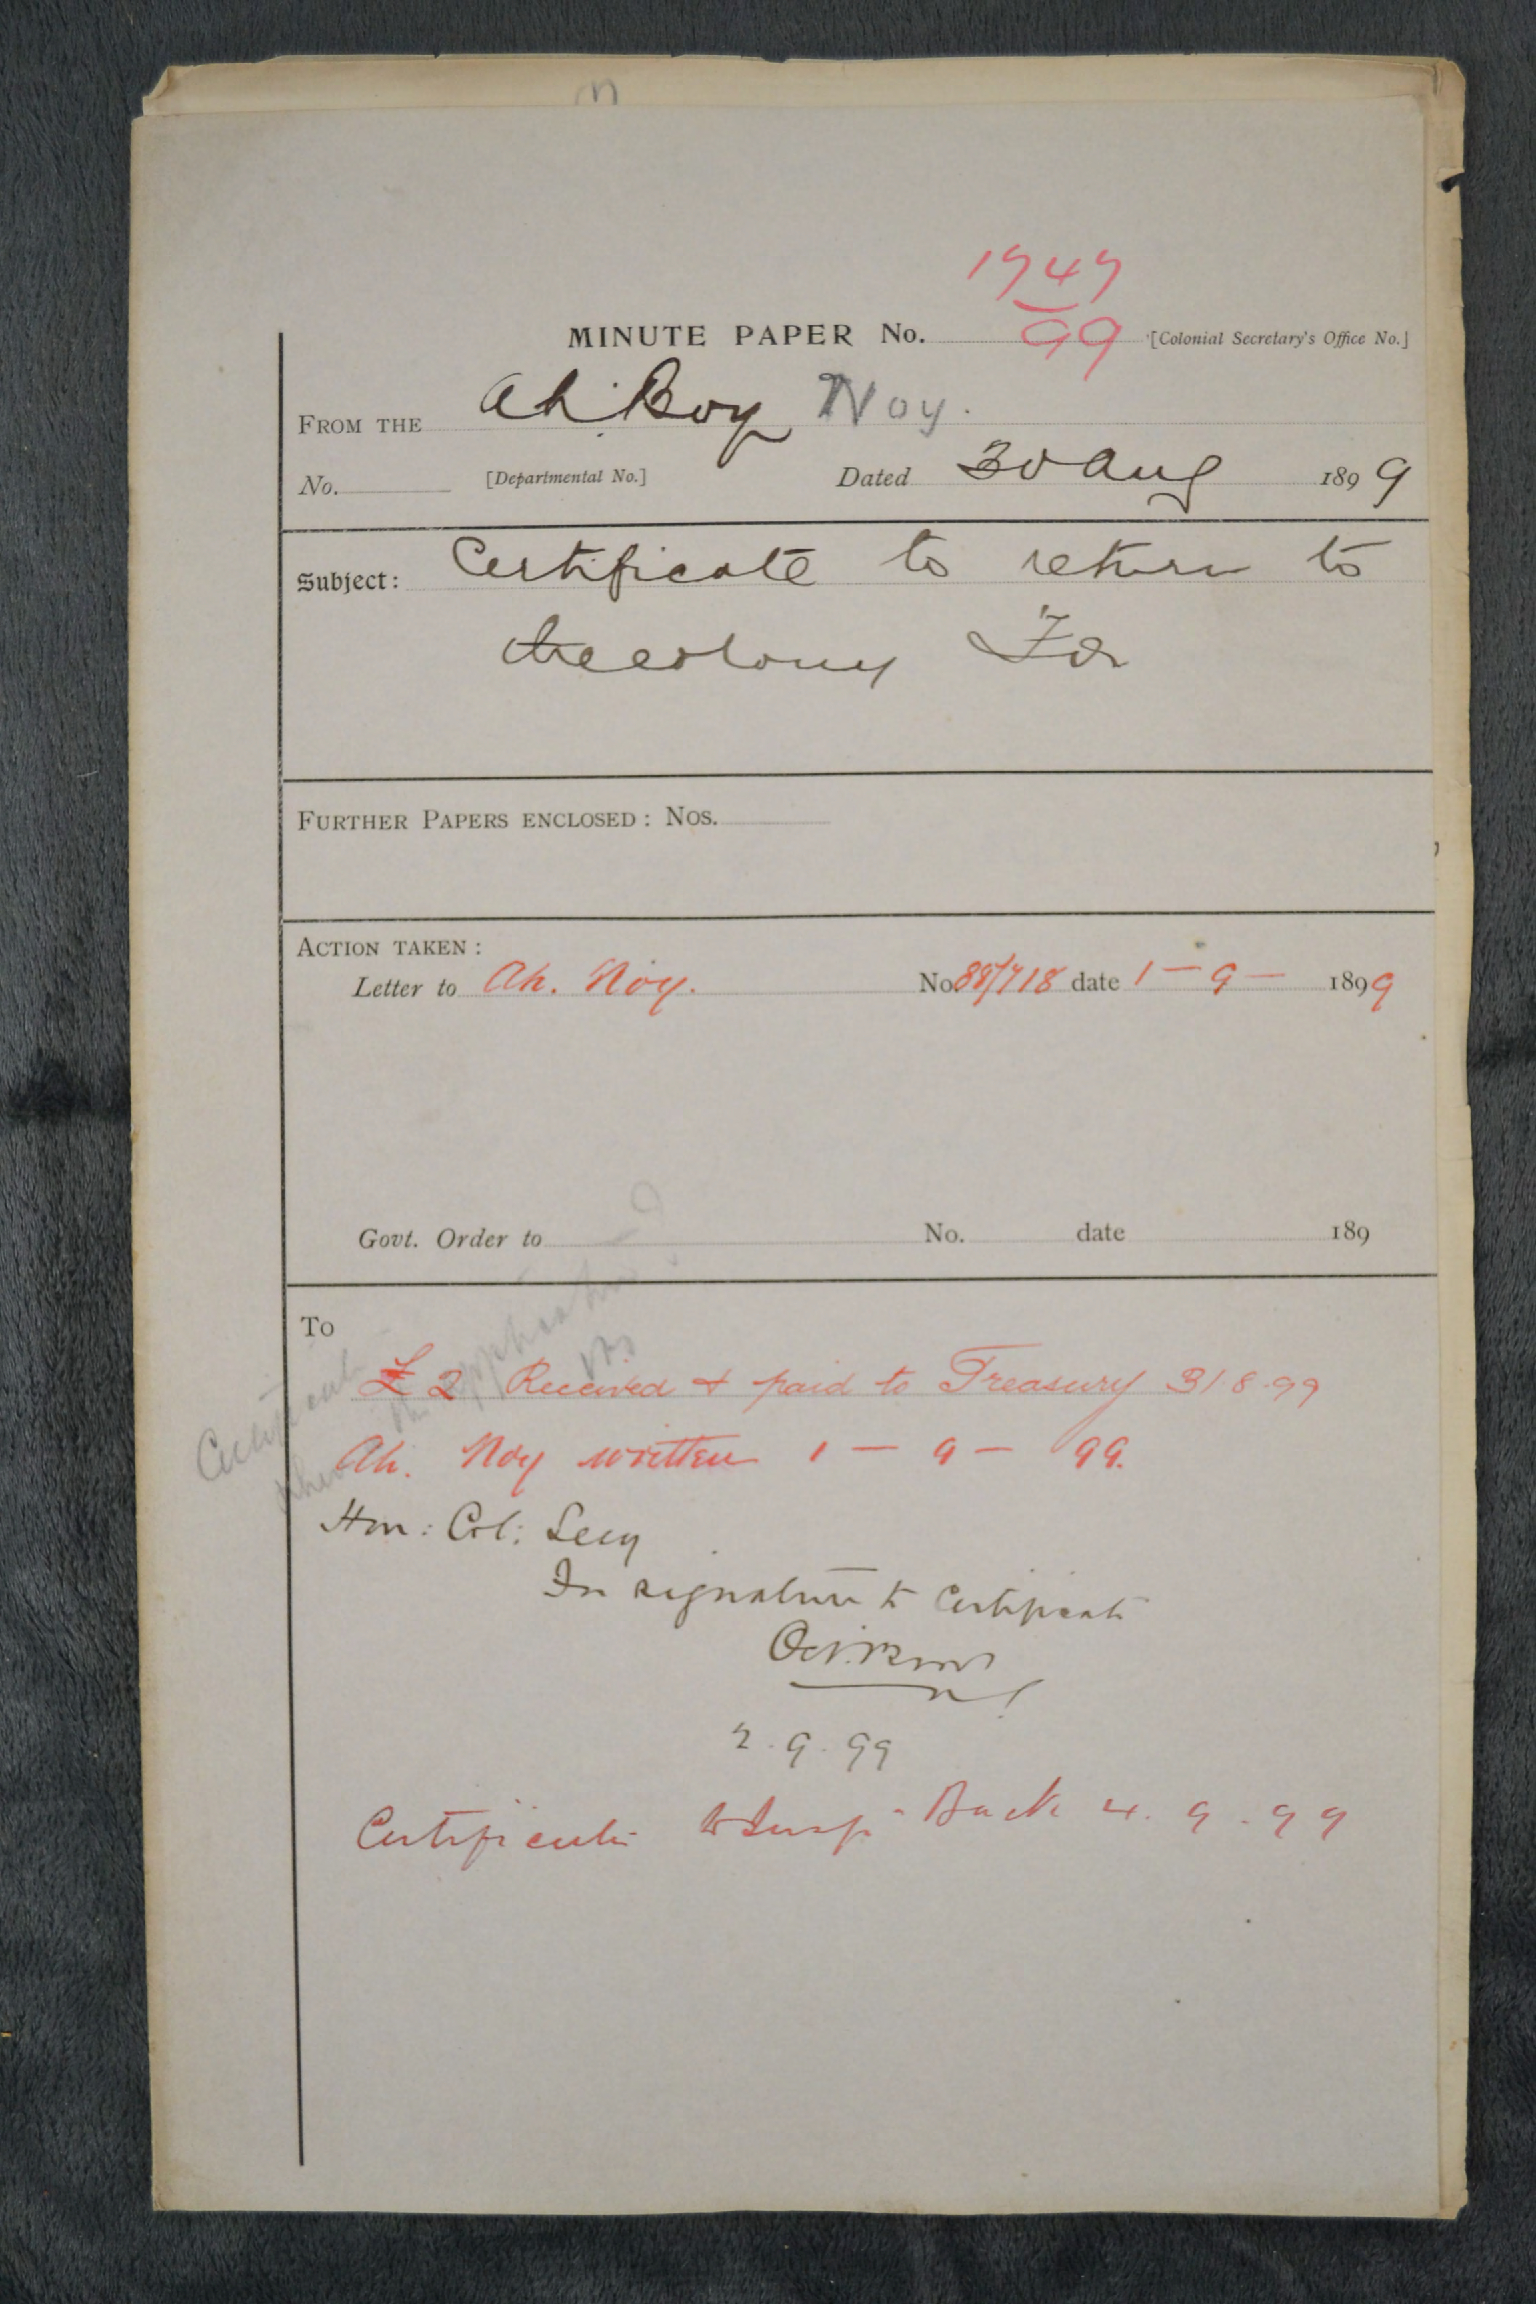 1747
99
MINUTE PAPER No. [Colonial Secretary's Office No.]
FROM THE Ah Boy Noy.
No. [Departmental No.] Dated 30 Aug 1899
Subject: Certificate to return to
the colony For
FURTHER PAPERS ENCLOSED: Nos.
ACTION TAKEN:
Letter to Ah. Noy. No. 88/718 date 1 – 9 – 1899
Govt. Order to No. date 189
To
£2 Received & paid to Treasury 31.8.99
Ah. Noy written 1 – 9 – 99.
Hon: Col: Secy
For signature to Certificate
2.9.99
Certificate to Insp Back 4.9.99
Certificate
application?